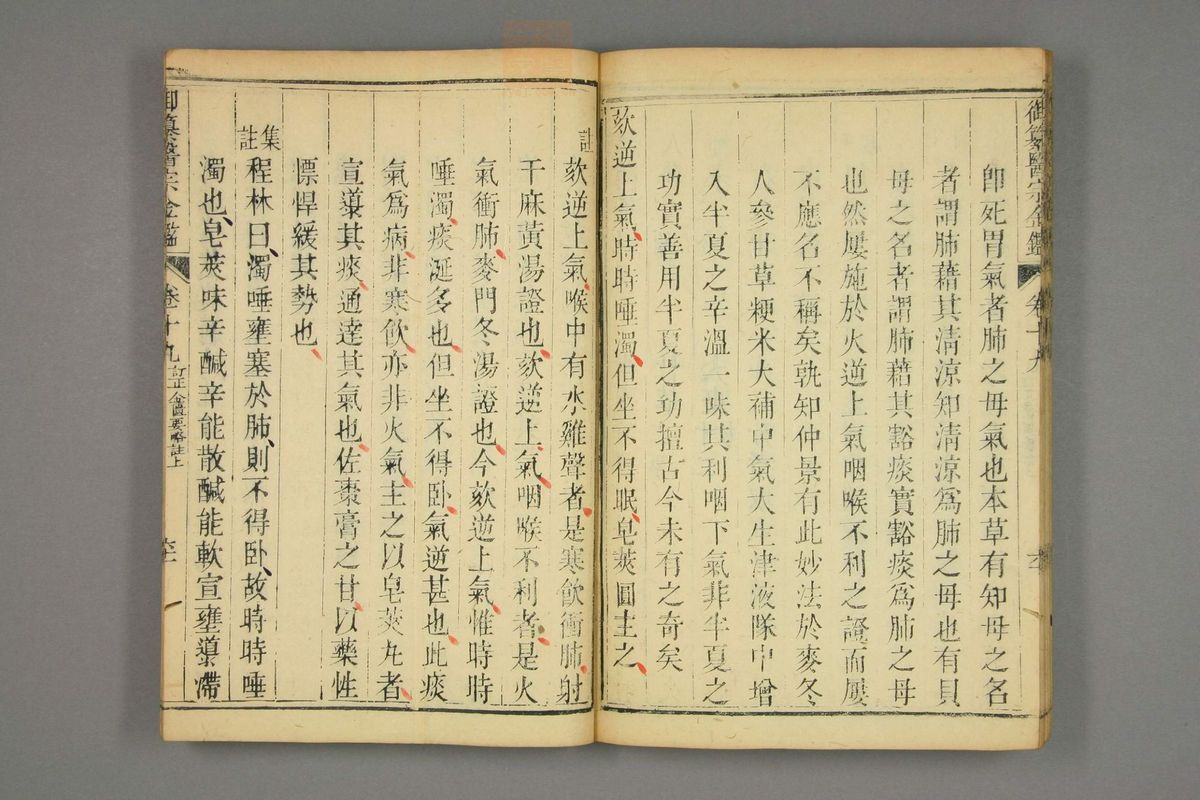 御纂醫宗金鑑 卷十九
卽死胃氣者肺之母氣也本草有知母之名
者謂肺藉其清涼知清涼爲肺之母也有貝
母之名者謂肺藉其豁痰實豁痰爲肺之母
也然屢施於火逆上氣咽喉不利之證而屢
不應名不稱矣孰知仲景有此妙法於麥冬
人參甘草粳米大補中氣大生津液隊中增
入半夏之辛溫一味其利咽下氣非半夏之
功實善用半夏之功擅古今未有之奇矣
欬逆上氣時時唾濁但坐不得眠皂莢圓主之
註
欬逆上氣喉中有水雞聲者是寒飮衝肺射
干麻黃湯證也欬逆上氣咽喉不利者是火
氣衝肺麥門冬湯證也今欬逆上氣惟時時
唾濁痰涎多也但坐不得卧氣逆甚也此痰
氣爲病非寒飮亦非火氣主之以皂莢丸者
宣導其痰通達其氣也佐棗膏之甘以藥性
慓悍緩其勢也
集註
程林曰濁唾壅塞於肺則不得卧故時時唾
濁也皂莢味辛鹹辛能散鹹能軟宣壅導滯
御纂醫宗金鑑 卷十九 訂正金匱要略註上